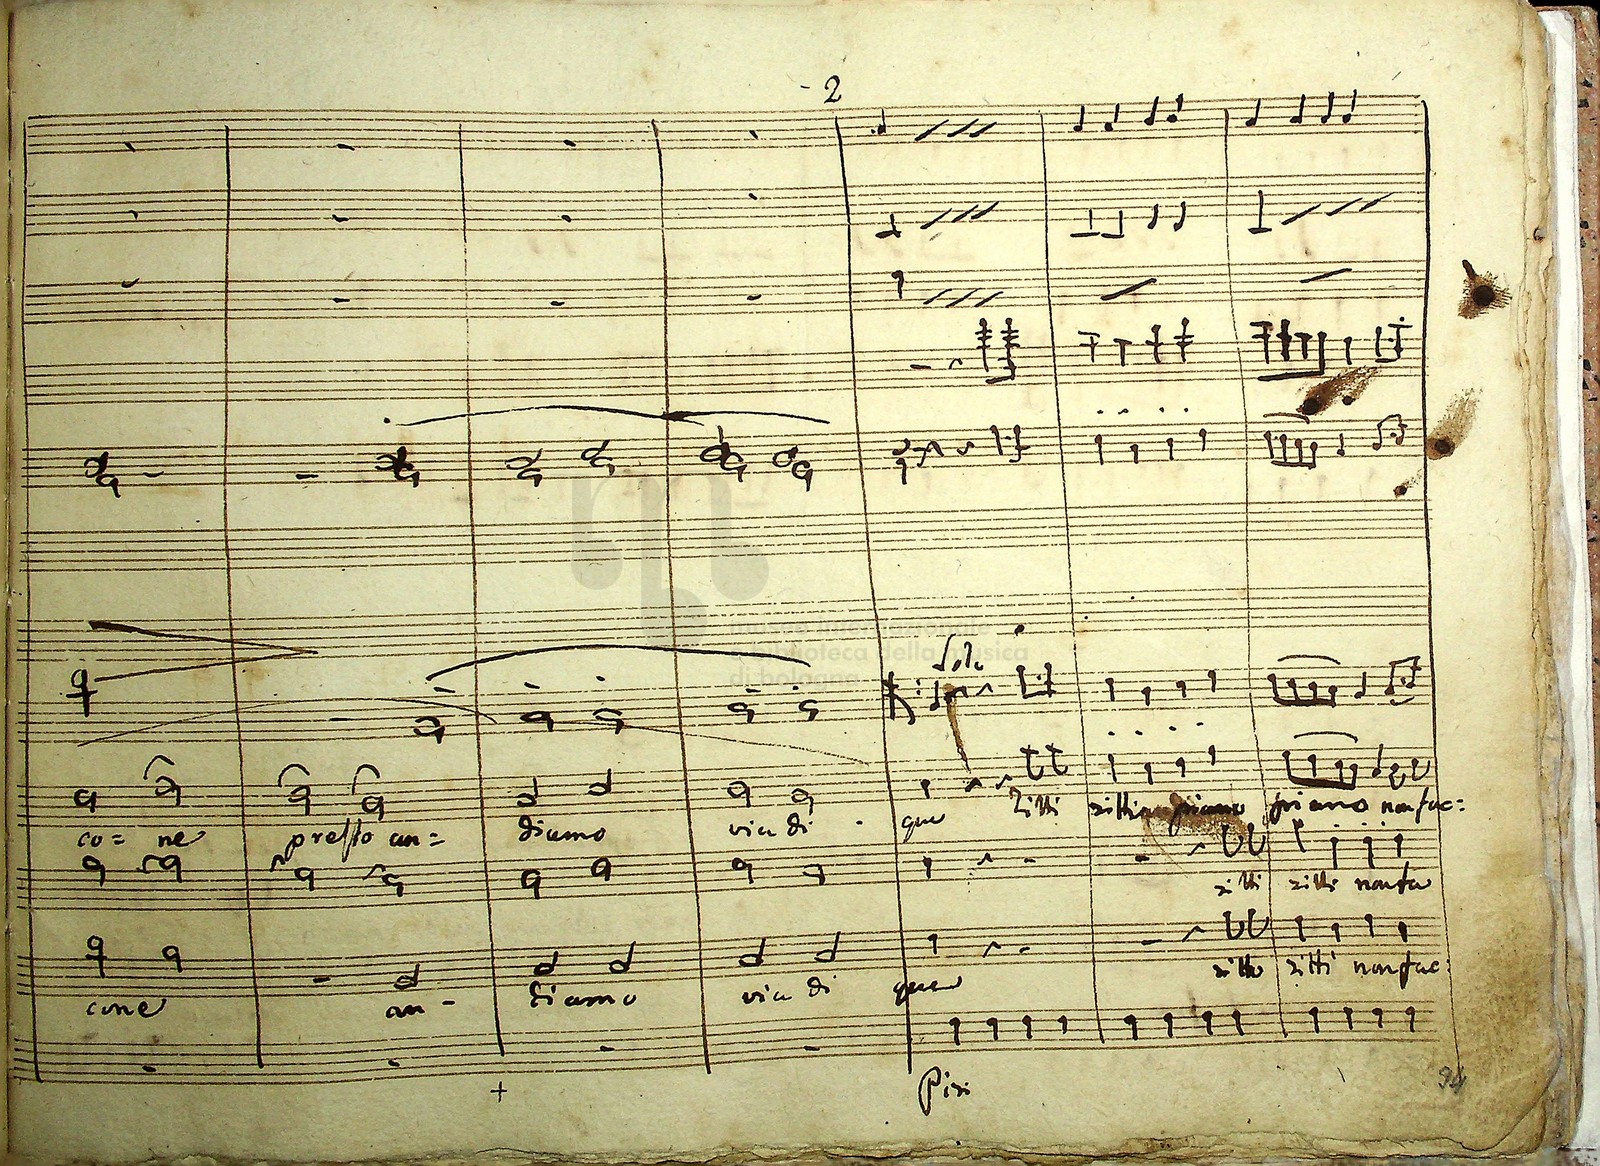 2
museo internazionale
e biblioteca della musica
di bologna
Solo
co= ne presto an= diamo via di qua Zitti zitti piano piano non fac=
zitti zitti non fa
cone an- diamo via di qua zitti zitti non fac:
Pizi
+
94